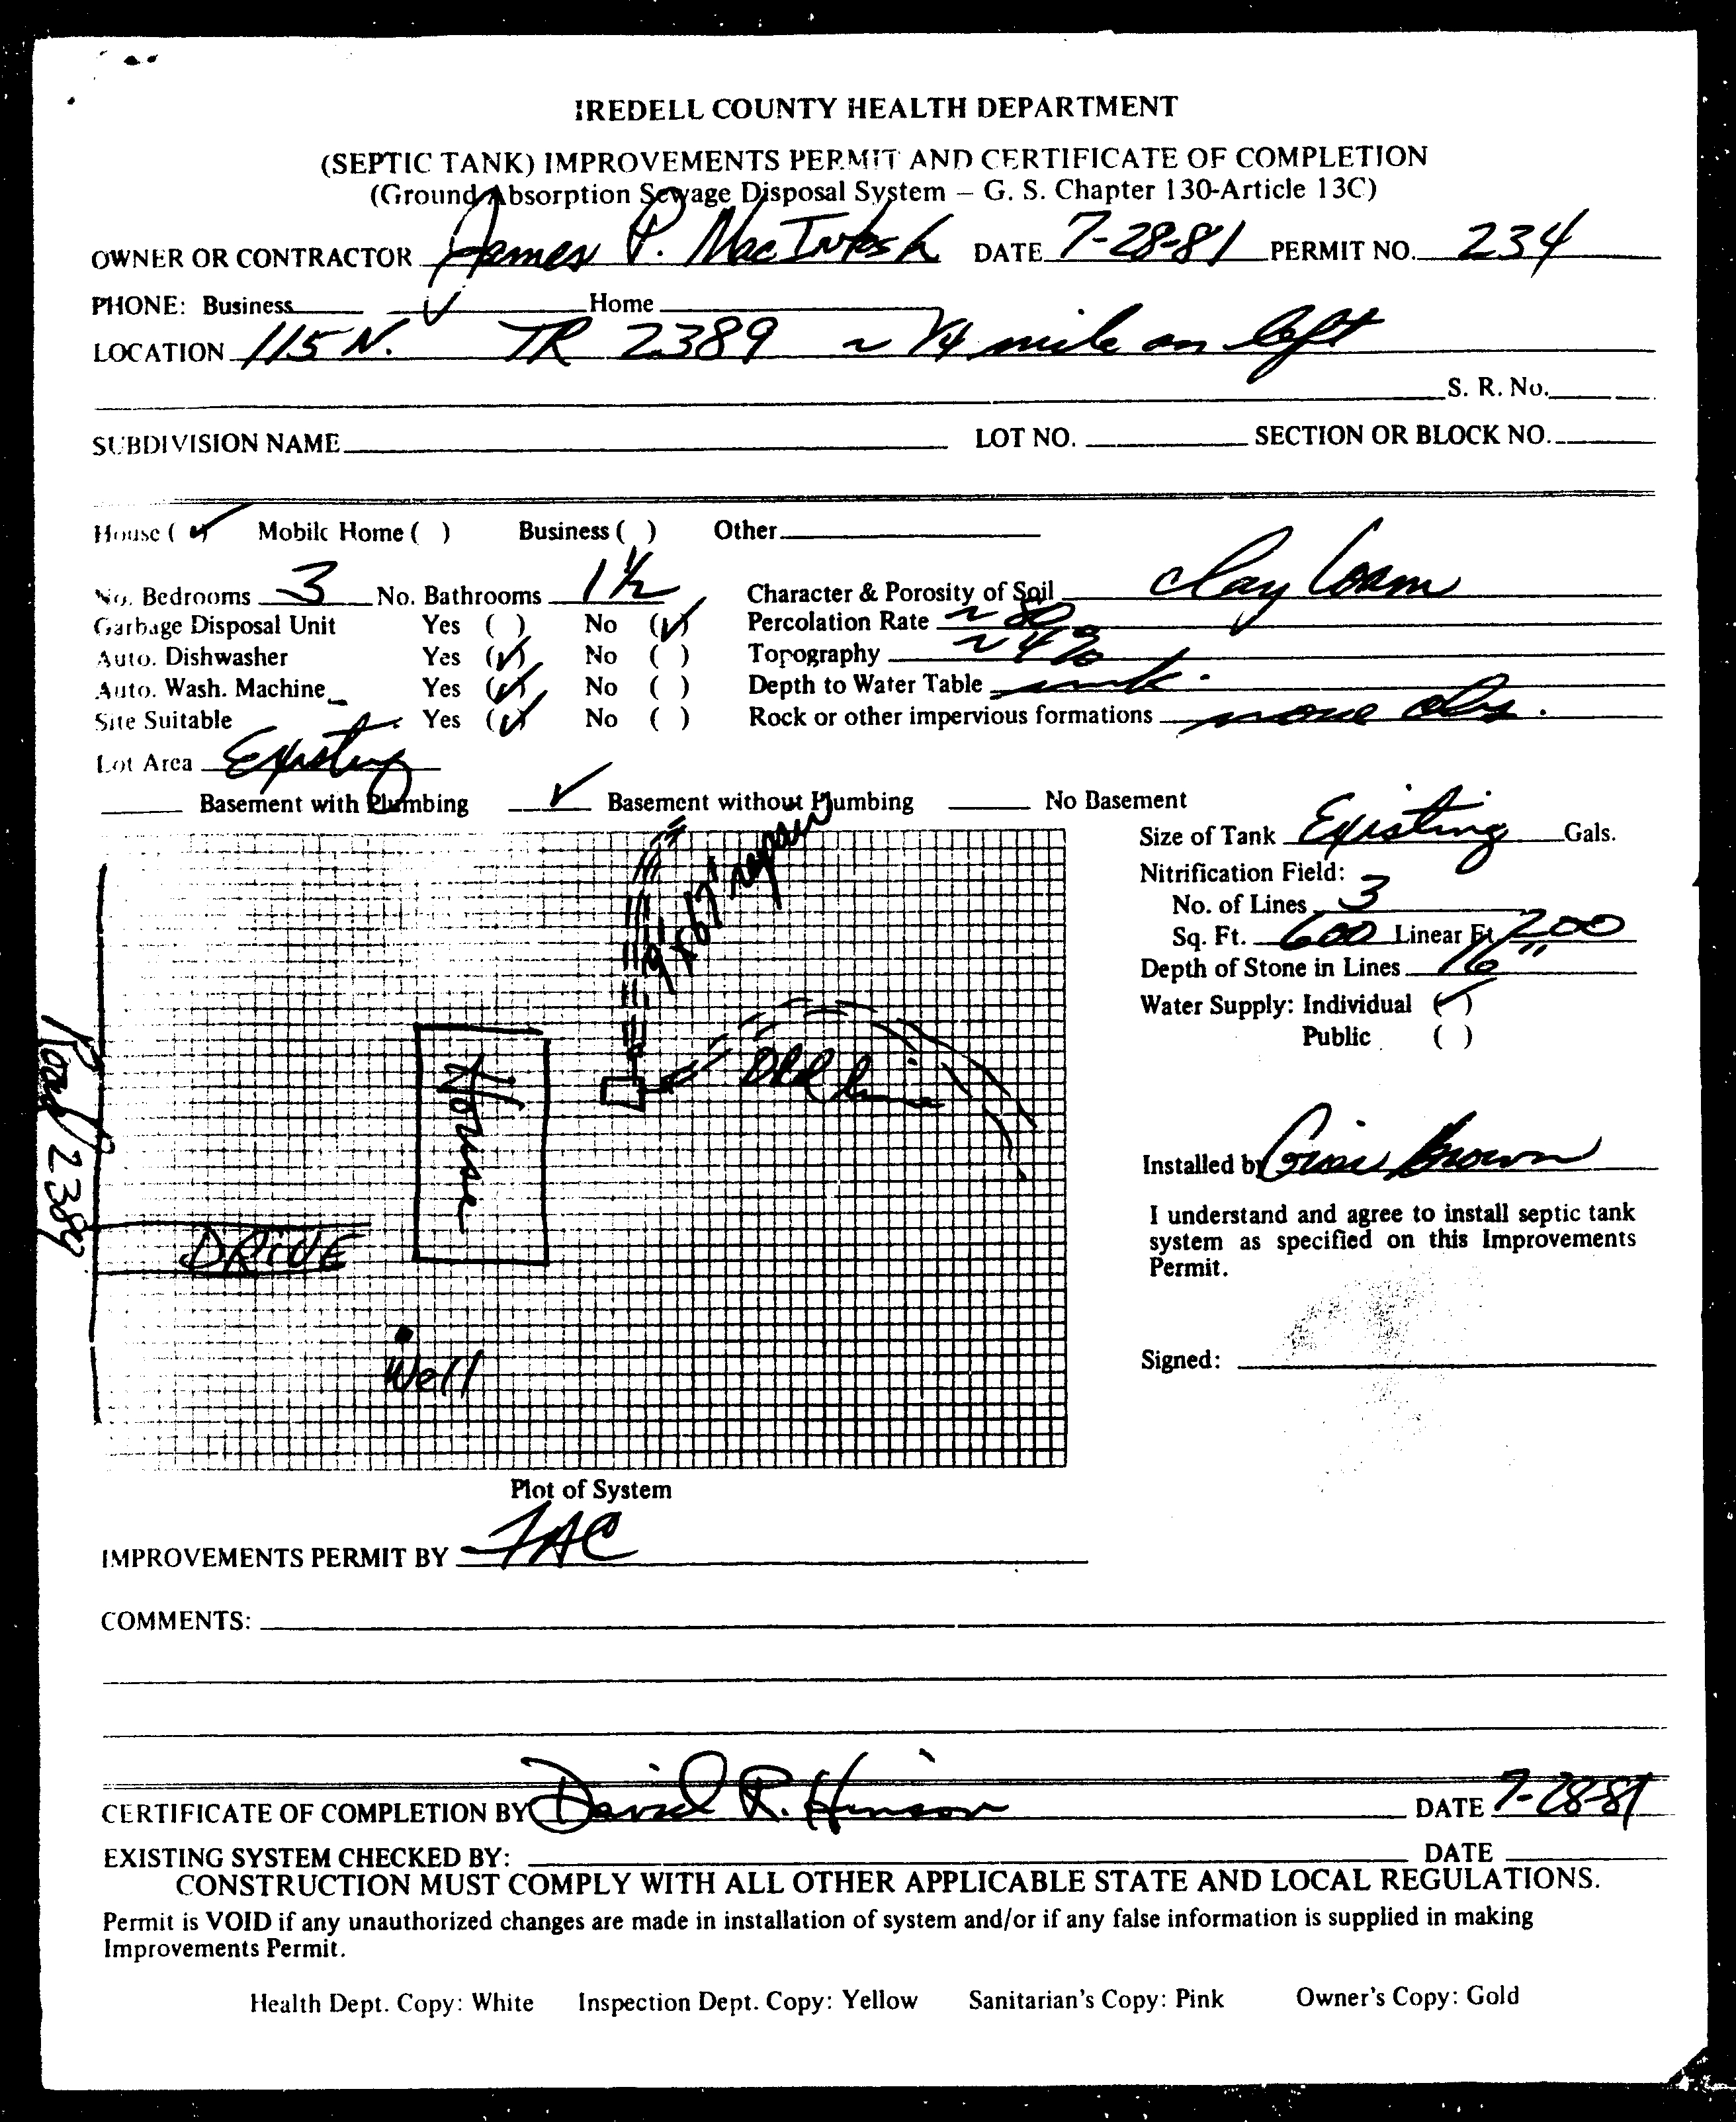 IREDELL COUNTY HEALTH DEPARTMENT
(SEPTIC TANK) IMPROVEMENTS PERMIT AND CERTIFICATE OF COMPLETION
(Ground Absorption Sewage Disposal System – G. S. Chapter 130-Article 13C)
OWNER OR CONTRACTOR James P. MacIntosh DATE 7-28-81 PERMIT NO. 234
PHONE: Business Home
LOCATION 115 N. TR 2389 ~ 1/4 mile on left
S. R. No.
SUBDIVISION NAME LOT NO. SECTION OR BLOCK NO.
House (✓) Mobile Home ( ) Business ( ) Other
No. Bedrooms 3 No. Bathrooms 1 1/2 Character & Porosity of Soil clay loam
Garbage Disposal Unit Yes ( ) No (✓) Percolation Rate ~ 80
Auto. Dishwasher Yes (✓) No ( ) Topography ~ 4%
Auto. Wash. Machine Yes (✓) No ( ) Depth to Water Table unk.
Site Suitable Yes (✓) No ( ) Rock or other impervious formations none obs.
Lot Area Existing
Basement with Plumbing ✓ Basement without Plumbing No Basement
Size of Tank Existing Gals.
Nitrification Field:
No. of Lines 3
Sq. Ft. 600 Linear Ft. 200
Depth of Stone in Lines 16"
Water Supply: Individual (✓)
Public ( )
repair
Old line
House
Road 2389
DRIVE
Well
Installed by Brown
I understand and agree to install septic tank
system as specified on this Improvements
Permit.
Signed:
Plot of System
IMPROVEMENTS PERMIT BY
COMMENTS:
CERTIFICATE OF COMPLETION BY David R. Hinson DATE 7-28-81
EXISTING SYSTEM CHECKED BY: DATE
CONSTRUCTION MUST COMPLY WITH ALL OTHER APPLICABLE STATE AND LOCAL REGULATIONS.
Permit is VOID if any unauthorized changes are made in installation of system and/or if any false information is supplied in making
Improvements Permit.
Health Dept. Copy: White Inspection Dept. Copy: Yellow Sanitarian's Copy: Pink Owner's Copy: Gold